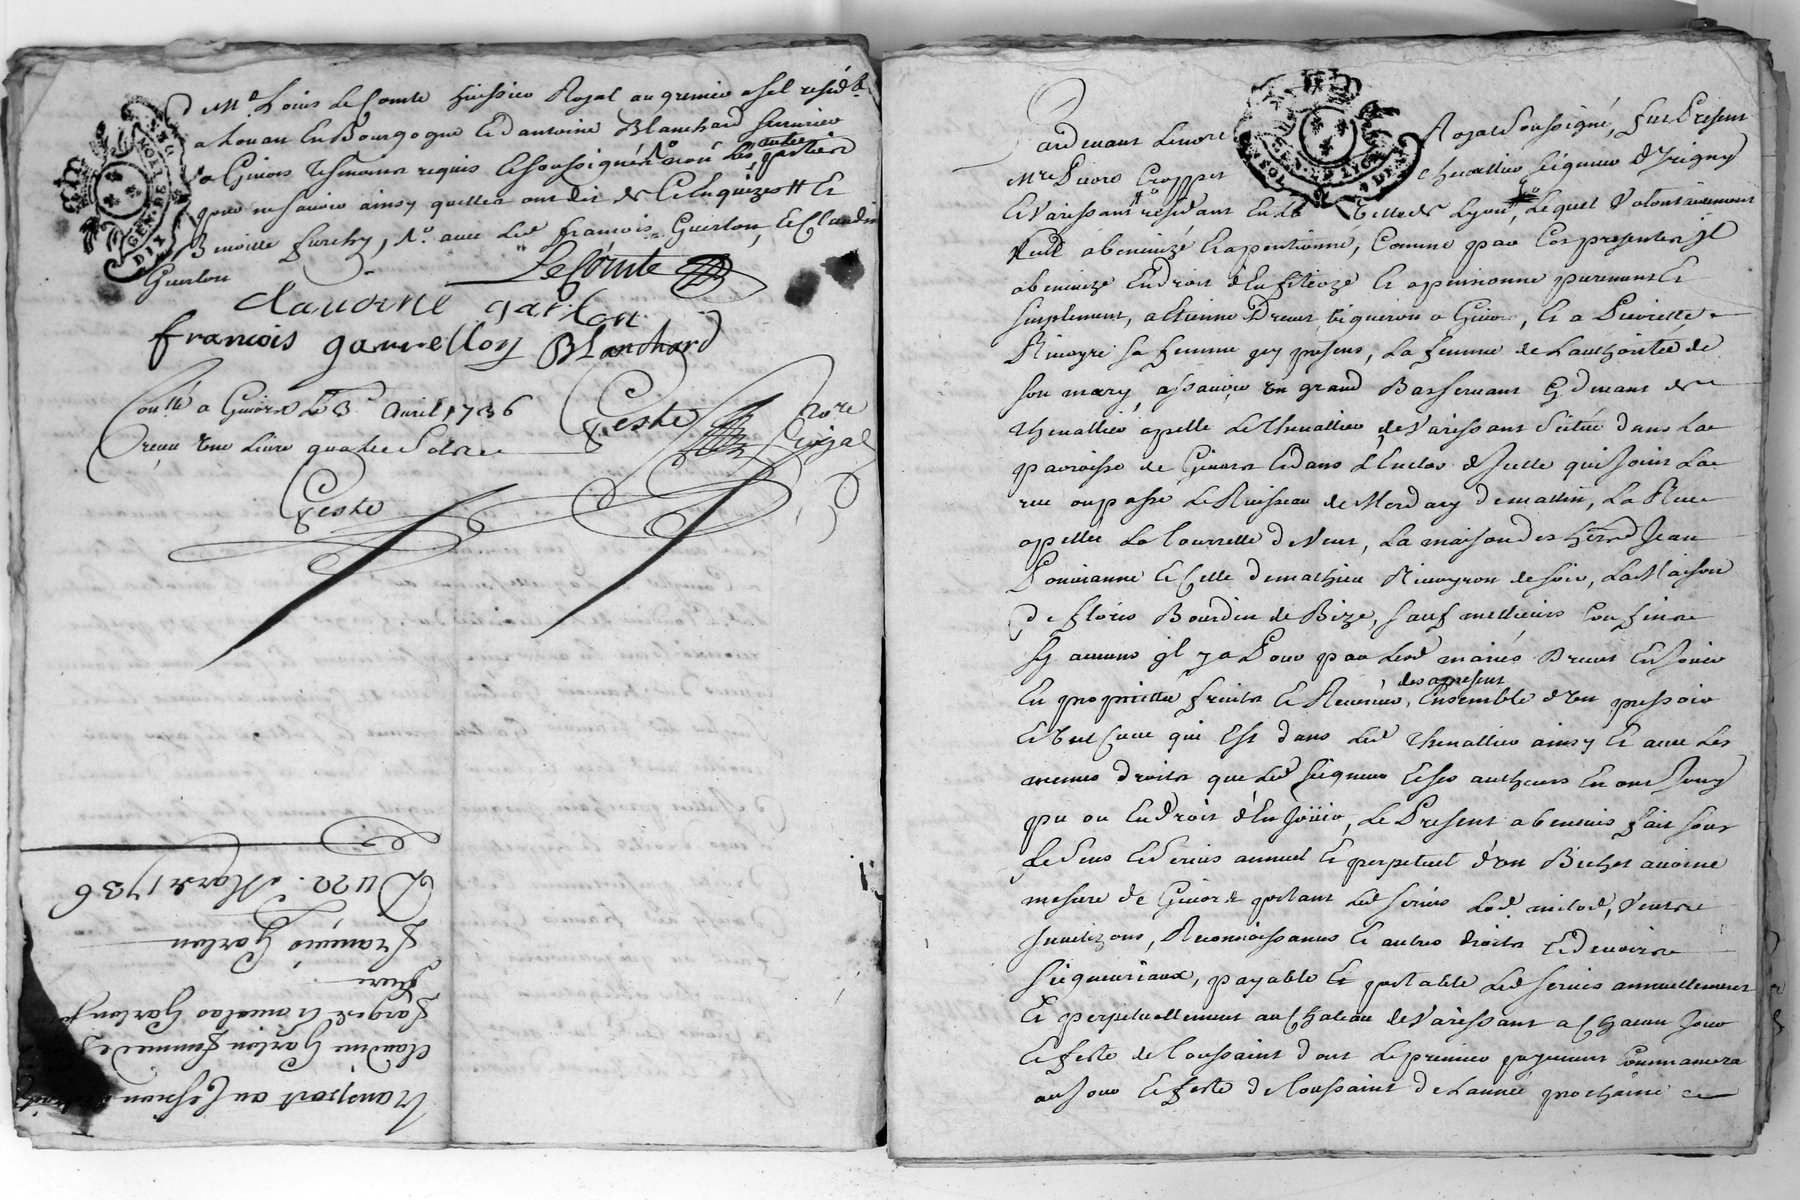 Mr Louis LeComte huissier Royal au grenier a sel resid.t
a Louan En Bourgogne Et d'antoine Blanchard serrurier
a Givors tesmoins requis Et soussignés non les autres parties
pour ne sçavoir ainsy quelles ont dit de ce Enquizes Et
Benoitte furchy, avec led françois Guerlon, Et Claudine
Guerlon
LeComte
claudine garlon
francois gourellon Blanchard
Con.llé a Givors Le 3e Avril 1736
Reçu une Livre quatre Sols
Geste
No.re Royal
Geste
GEN. DE LYON
DIX
transport au cession
claudine Garlon femme de
Larget Et nicolas Garlon
frere
françois Garlon
Du 22. Mars 1736
Pardevant Le no.re Royal soussigné, fut Present
M.re Pierre Croppet chevallier seigneur d'Irigny
Et Varissant residant En La Ville de Lyon, Lequel Volontairement
a benevizé Et apentionné, Comme par Ces presentes Il
abenevize En droit d'Enfiteoze Et apensionne purement Et
simplement, a Etienne Drevet Vigneron a Givors, Et a Pierrette
Rivoyre sa femme icy presens, La femme de L'authoritée de
son mary, assavoir un grand Bas servant cy devant de
thenallier apellé Le thenallier de Varissant Scitué dans La
parroisse de Givors Et dans L'Enclos d'Icelle qui Joint La
rue ou passe Le Ruisseau de Mordary de matin, La Rue
apellée La tourrette de vent, La maison des her.s de Jean
Et Celle de mathieu Rivoyron de soir, La Maison
de floris Bourdin de Bize, sauf meilleurs Confins
sy aucuns il y a Pour par Lesd mariés Drevet En Jouir
En proprietée fruits Et Revenus des apresent, Ensemble d'un pressoir
Et une Cuve qui Est dans Led thenallier ainsy Et avec Les
memes droits que Led seigneur Et ses autheurs En ont Jouy
pu ou Eu Droit d'En Joüir, Le Present abenevis fait sous
le Cens Et Servis annuel Et perpetuel d'un Bichet avoine
mesure de Givors portant Led servis Lod. milod, Ventes
Inuetizons, Reconnoissances Et autres droits Et devoirs
seigneuriaux, payable Et portable Led servis annuellement
Et perpetuellement au Chateau de Varissant a Chacun Jour
Et feste de toussaint dont Le premier payement Commancera
au Jour Et feste de toussaint de L'année prochaine